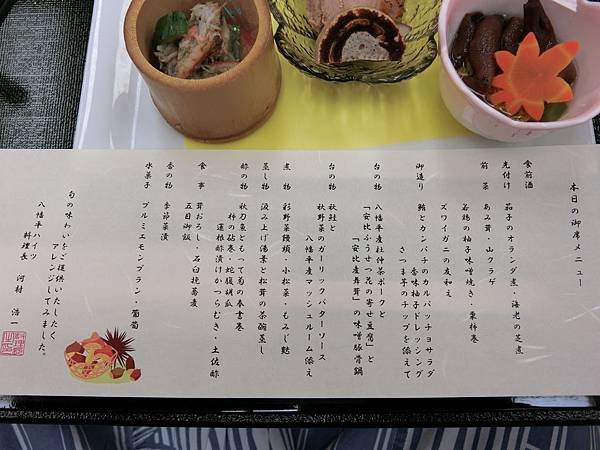 本日の御席メニュー
食前酒
先付け　茄子のオランダ煮・海老の芝煮
前　菜　あみ茸・山クラゲ
若鶏の柚子味噌焼き・栗科巻
ズワイガニの友和え
御造り　鮪とカンパチのカルパッチョサラダ
香味柚子ドレッシング
さつま芋のチップを添えて
台の物　八幡平産杜仲茶ポークと
「安比ふうせつ花の寄せ豆腐」と
「安比産舞茸」の味噌豚骨鍋
台の物　秋鮭と
秋野菜のガーリックバターソース
八幡平産マッシュルーム添え
煮　物　彩野菜饅頭・小松菜・もみじ麩
蒸し物　汲み上げ湯葉と松茸の茶碗蒸し
酢の物　秋刀魚ともって菊の奉書巻
柿の砧巻・蛇腹胡瓜
蓮根酢漬けかつらむき・土佐酢
食　事　茸おろし・石臼挽蕎麦
五目御飯
香の物　季節菜漬
水菓子　プルミエモンブラン・葡萄
旬の味わいをご提供いたしたく
アレンジしてみました。
八幡平ハイツ
料理長　河村　浩一